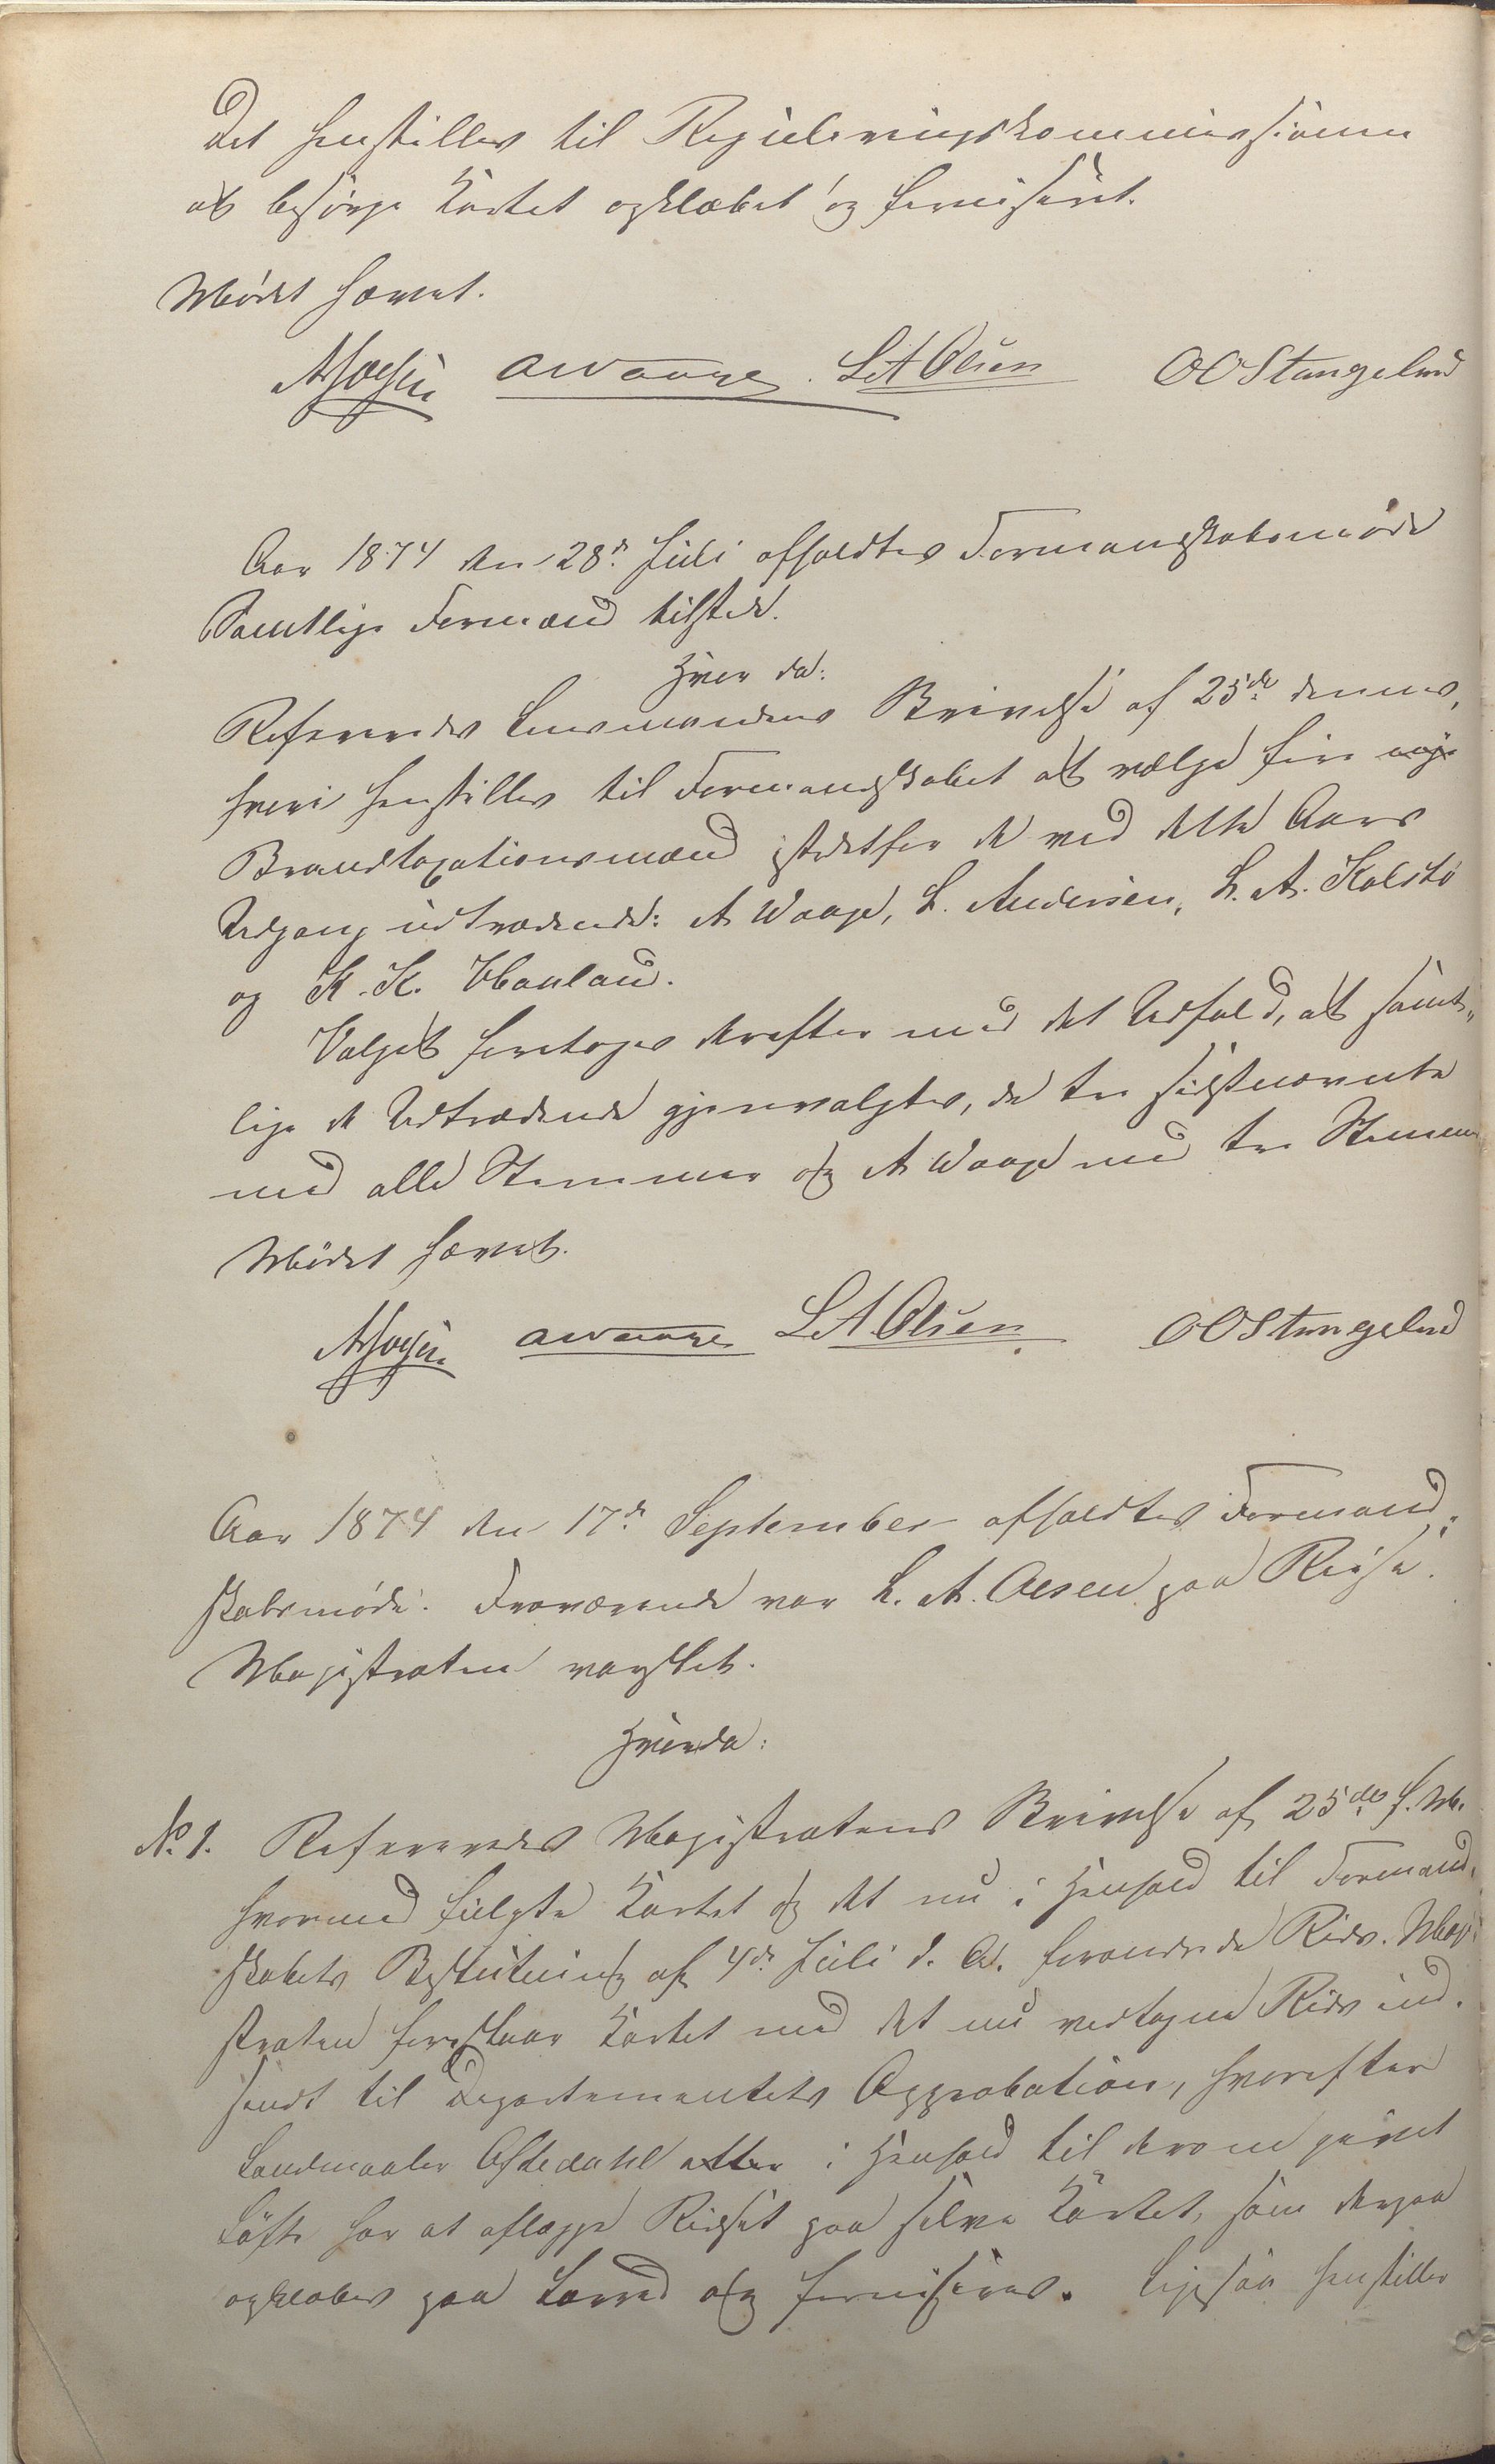 Det henstilles til Reguleringskommissionen
at besørge Kartet opklæbet og ferniseret.
Mødet hævet.
AWaage. L A Olsen O O Stangeland
Aar 1874 den 28de Juli afholdtes Formandskabsmøde
Samtlige Formænd tilstede.
Hvor da:
Refereredes Lensmandens Skrivelse af 25de dennes,
hvori henstilles til Formandskabet at vælge fire nye
Brandtaxationsmænd istedetfor de ved dette Aars
Udgang udtrædende: A Waage, L. Andersen, L. A. Kolstø
og K. K.
Valget foretoges derefter med det Udfald, at samt-
lige de Udtrædende gjenvalgtes, de tre sidstnævnte
med alle Stemmer og A Waage med tre Stemmer
Mødet hævet.
AWaage L A Olsen. O O Stangeland
Aar 1874 den 17de September afholdtes Formand-
skabsmøde. Fraværende var L. A. Olsen paa Reise.
Magistraten varslet.
Hvorda:
No. 1. Refereredes Magistratens Skrivelse af 25des f. M.
hvormed fulgte Kartet og det nu i Henhold til Formand-
skabets Beslutning af 4de Juli d. A. forandrede Rids. Magi-
straten foreslaar Kartet med det nu vedtagne Rids ind-
sendt til Departementets Approbation, hvorefter
Landmaaler Oftedahl atter i Henhold til derom givet
Løfte har at aflægge Ridset paa selve Kartet, som derpaa
opklæbes paa Lærred og ferniseres. Ligesaa henstiller